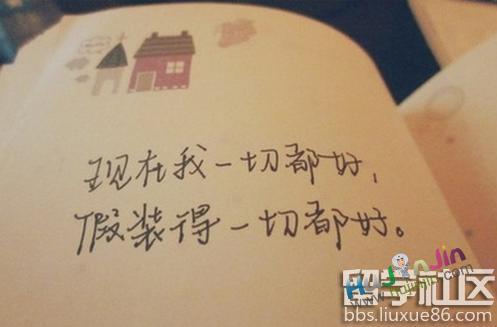 现在我一切都好，
假装得一切都好。
留学社区
bbs.liuxue86.com